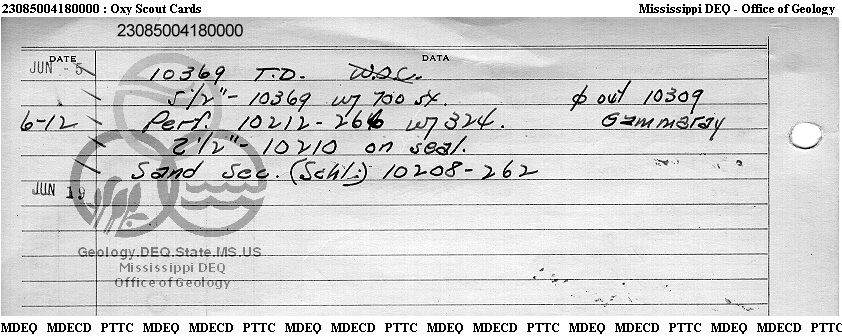 23085004180000 : Oxy Scout Cards Mississippi DEQ - Office of Geology
23085004180000
DATE DATA
JUN - 5 10369 T.D. W.O.C.
5 1/2" - 10369 w/ 700 sx. φ out 10309
6-12 Perf. 10212-266 w/ 324. Gammaray
2 1/2" - 10210 on seal.
Sand Sec. (Schl.) 10208-262
JUN 19
Geology.DEQ.State.MS.US
Mississippi DEQ
Office of Geology
MDEQ MDECD PTTC MDEQ MDECD PTTC MDEQ MDECD PTTC MDEQ MDECD PTTC MDEQ MDECD PTTC MDEQ MDECD PTTC